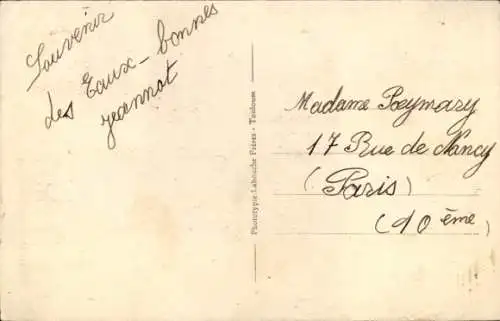 Souvenir
des Eaux-bonnes
Jeannot
Phototypie Labouche Frères - Toulouse
Madame Reymary
17 Rue de Nancy
(Paris)
(10 ème)